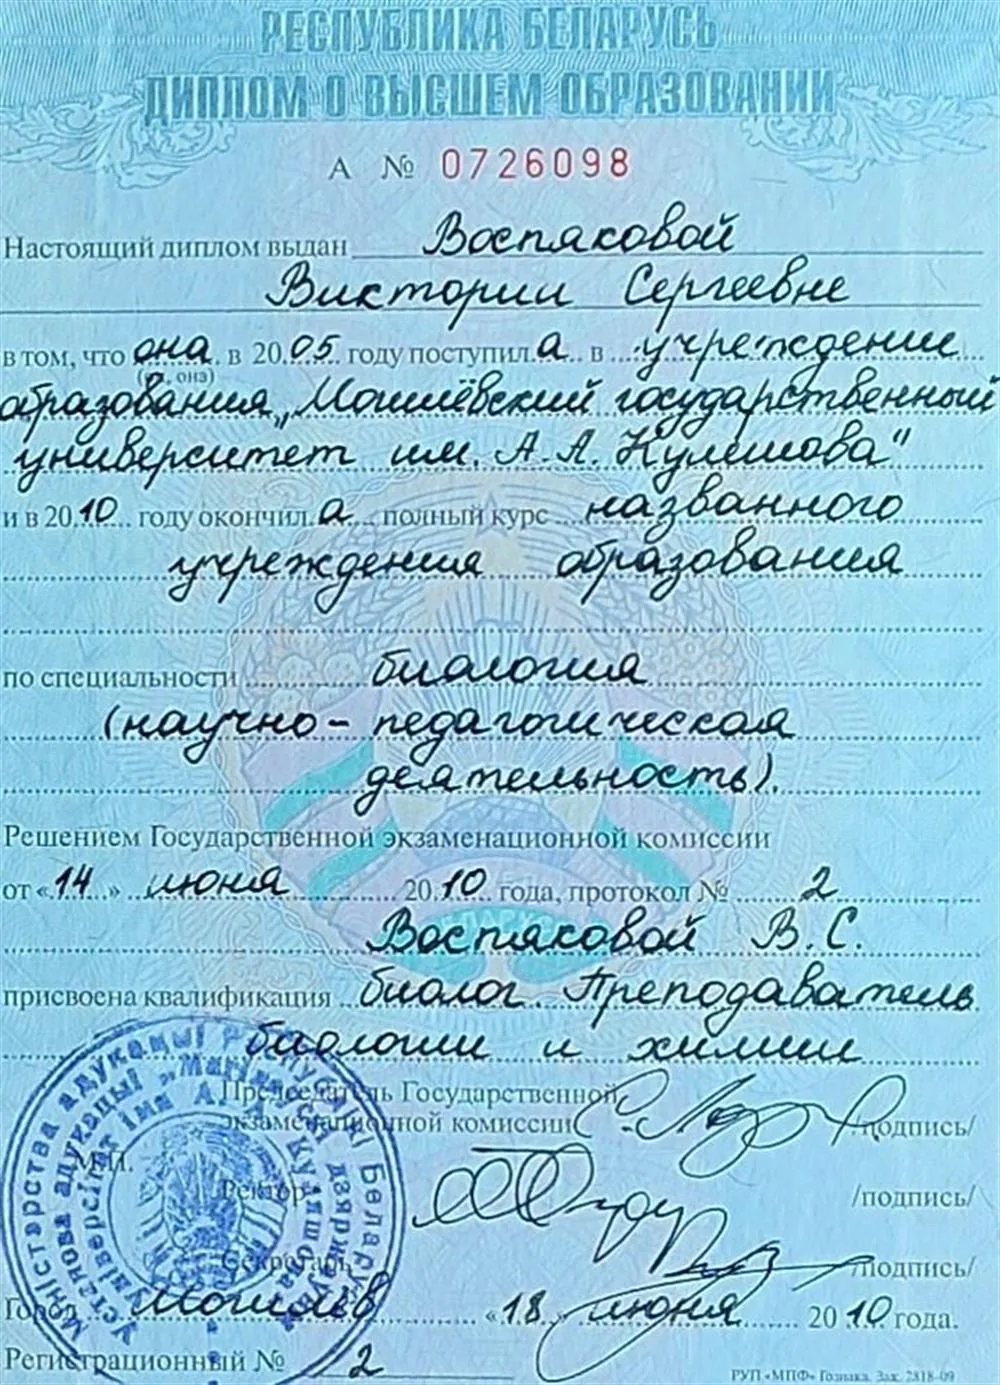 РЕСПУБЛИКА БЕЛАРУСЬ
ДИПЛОМ О ВЫСШЕМ ОБРАЗОВАНИИ
А № 0726098
Настоящий диплом выдан Воспяковой
Виктории Сергеевне
в том, что она в 2005 году поступила в учреждение
(он, она)
образования „Могилёвский государственный
университет им. А.А. Кулешова"
и в 2010 году окончила полный курс названного
учреждения образования
по специальности биология
(научно-педагогическая
деятельность).
Решением Государственной экзаменационной комиссии
от «14» июня 2010 года, протокол № 2
Воспяковой В.С.
присвоена квалификация биолог. Преподаватель
биологии и химии
Председатель Государственной
экзаменационной комиссии /подпись/
М.П.
Ректор /подпись/
Секретарь /подпись/
Город Могилёв «18» июня 2010 года.
Регистрационный № 2
Міністэрства адукацыі Рэспублікі Беларусь
Установа адукацыі „Магілёўскі дзяржаўны
універсітэт імя А.А. Куляшова"
БЕЛАРУСЬ
РУП «МПФ» Гознака. Зак. 2818-09